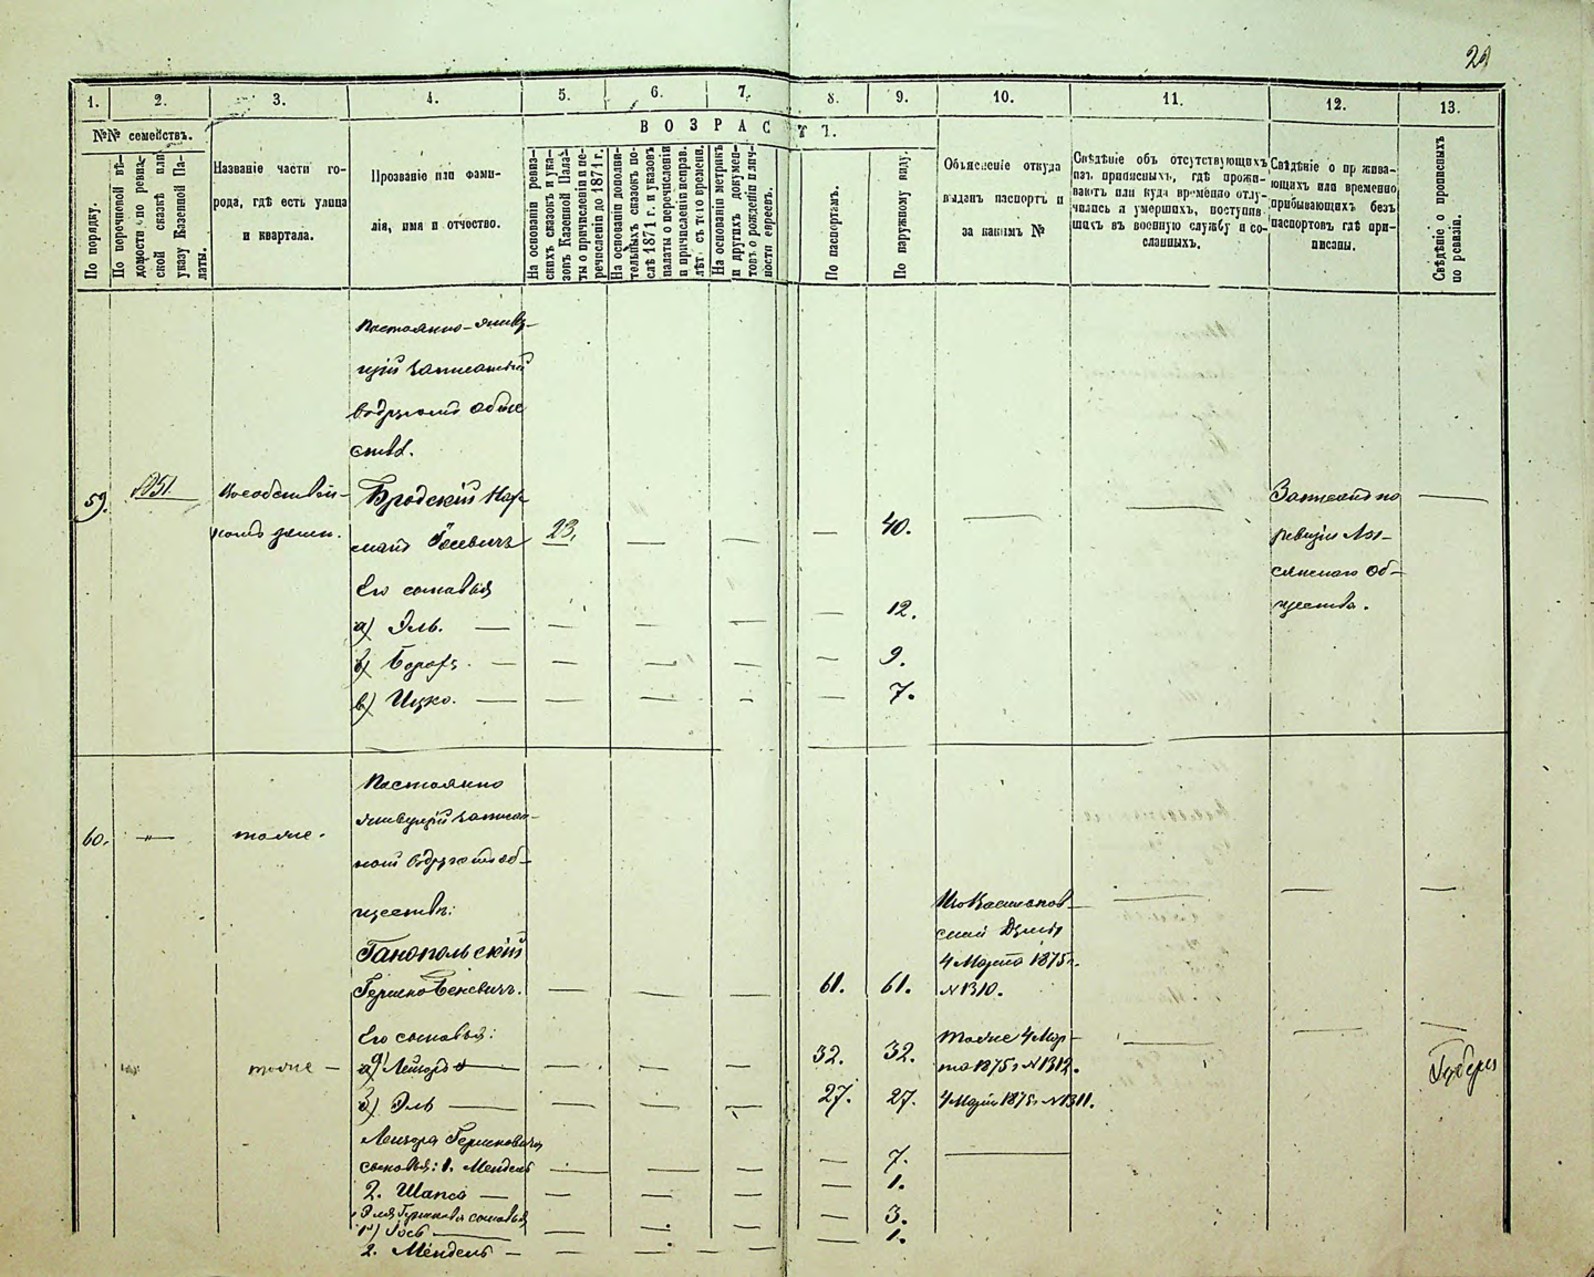 29
1. 2. 3. 4. 5. 6. 7. 8. 9. 10. 11. 12. 13.
№№ семействъ.
ВОЗРАСТЪ.
По порядку.
По перечневой вѣ-
домости по ревиз-
ской сказкѣ или
указу Казенной Па-
латы.
Названіе части го-
рода, гдѣ есть улица
и квартала.
Прозваніе или фами-
лія, имя и отчество.
На основаніи ревиз-
скихъ сказокъ и ука-
зовъ Казенной Пала-
ты о причисленіи и пе-
речисленіи до 1871 г.
На основаніи дополни-
тельныхъ сказокъ по-
слѣ 1871 г. и указовъ
палаты о перечисленіи
и причисленіи исправ.
лѣт. съ того времени.
На основаніи метрикъ
и другихъ докумен-
товъ о рожденіи и лич-
ности евреевъ.
По паспортамъ.
По наружному виду.
Объясненіе откуда
выданъ паспортъ и
за какимъ №
Свѣдѣніе объ отсутствующихъ
изъ приписныхъ, гдѣ прожи-
ваютъ или куда временно отлу-
чились и умершихъ, поступив-
шихъ въ военную службу и со-
сланныхъ.
Свѣдѣніе о прожива-
ющихъ или временно
прибывающихъ безъ
паспортовъ гдѣ при-
писаны.
Свѣдѣніе о прописныхъ
по ревизіи.
Постоянно-живу-
щій записаный
въ другомъ обще
ствѣ.
59. №51. Въ собствен- Бродскій Нах- Записанъ по
номъ домѣ. манъ Іосевичъ 23. — — — 40. ревизіи
Его сыновья скаго Об-
а) Эль. — — — — — 12. щества.
б) Борохъ. — — — — — 9.
в) Ицко. — — — — — 7.
Постоянно
живущій записан-
60. —"— тоже.
ной въ другомъ об-
ществѣ:
Ганопольскій
Гершко Беневичъ. — — — 61. 61.
4 Марта 1875 г.
№ 1310.
Его сыновья:
тоже — а) Лейзоръ — — — — 32. 32. тоже 4 Мар-
та 1875 г. № 1312.
б) Эль — — — — 27. 27. 4 Марта 1875 г. № 1311.
Лейзора Гершковича
сыновья: 1. Мендель — — — — 7.
2. Шапса — — — — — 1.
Эля Гершкова сыновья
1) Іось — — — — — 3.
2. Мендель — — — — — 1.